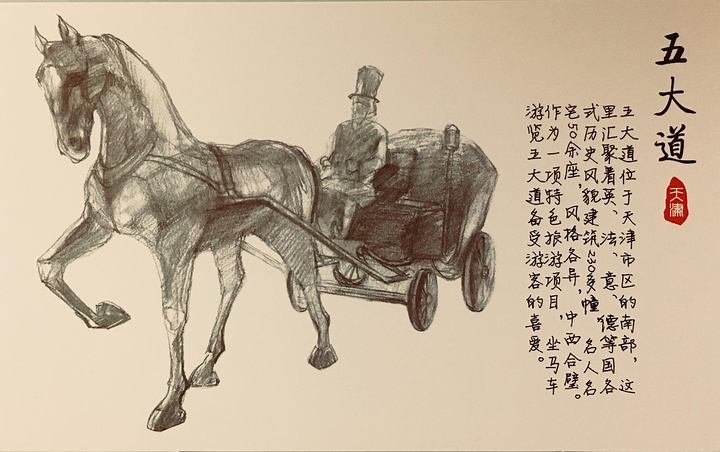 五大道
天津
五大道位于天津市区的南部，这
里汇聚着英、法、意、德等国各
式历史风貌建筑230多幢，名人名
宅50余座，风格各异，中西合璧。
作为一项特色旅游项目，坐马车
游览五大道备受游客的喜爱。